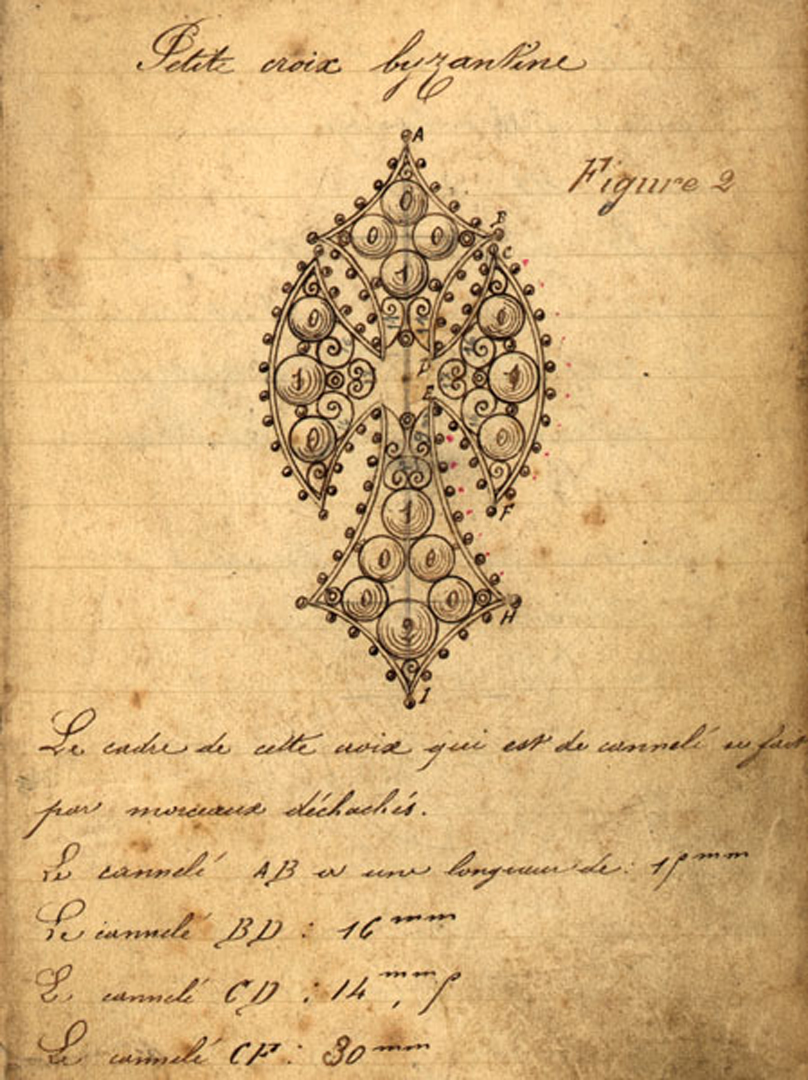 Petite croix byzantine
A
Figure 2
0
B
0 0
C
1
0 0
D
1 1
E
0 0
1
F
0 0
0 0
H
2
I
Le cadre de cette croix qui est de cannelé se fait
par morceaux détachés.
Le cannelé AB a une longueur de : 15mm
Le cannelé BD : 16mm
Le cannelé CD : 14mm,5
Le cannelé CF : 30mm